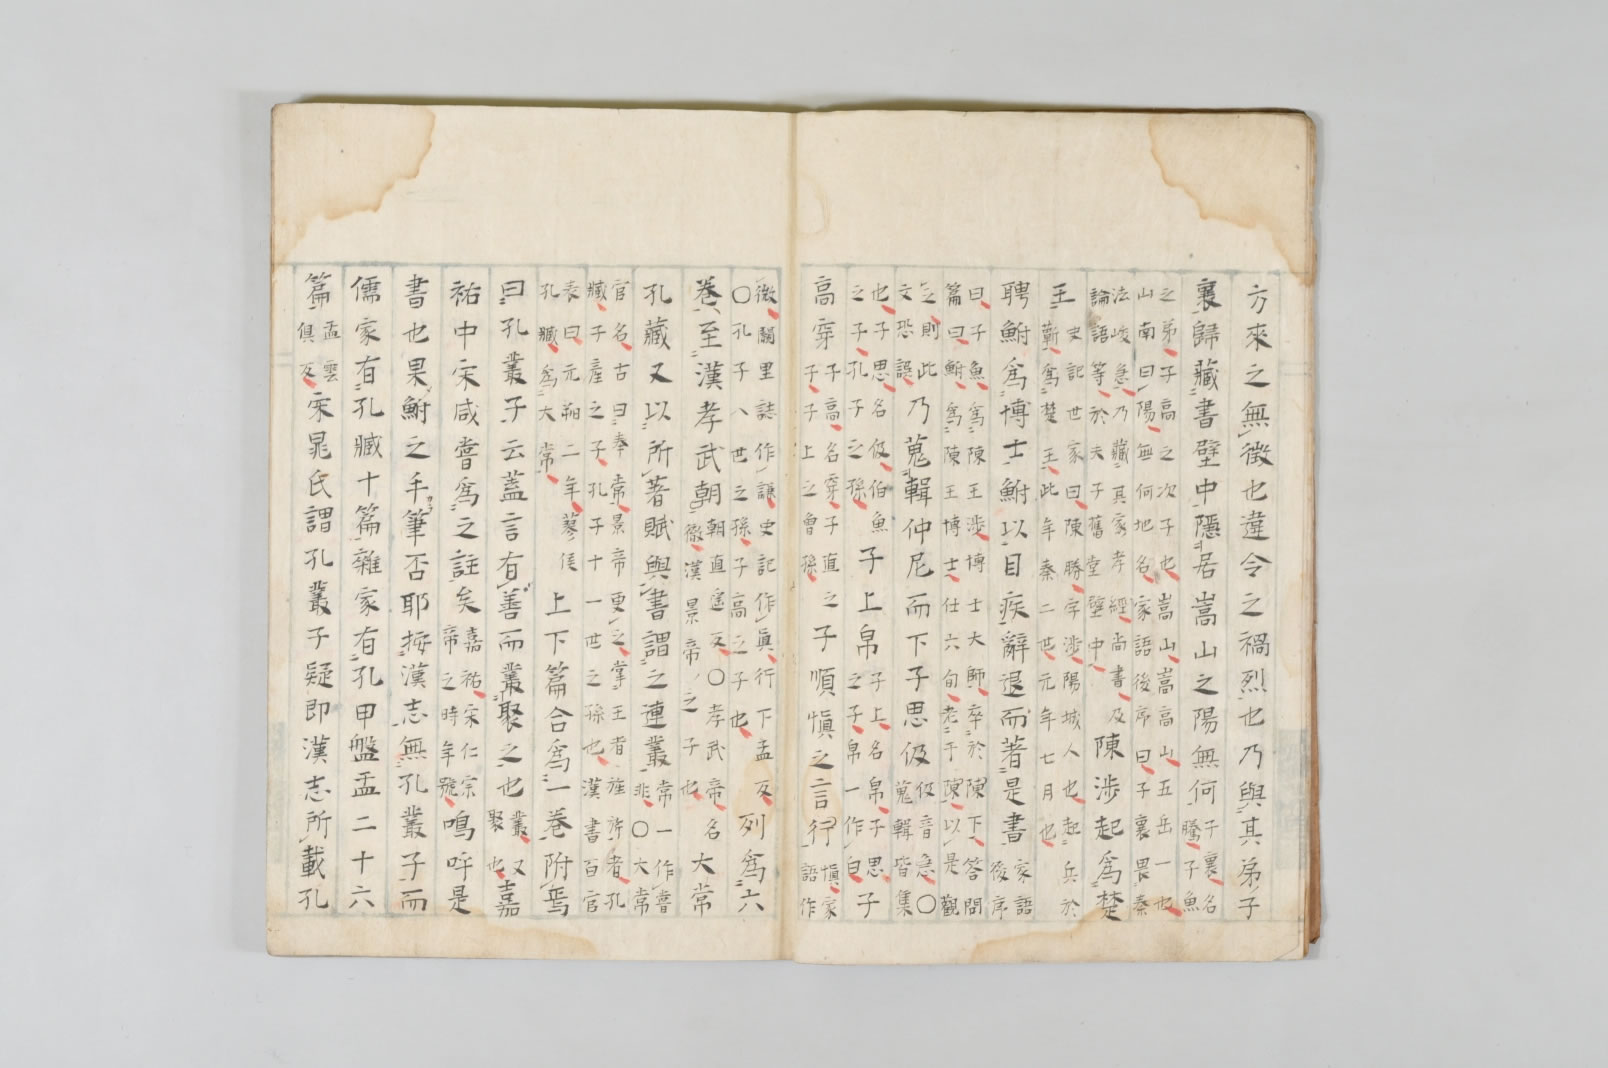 方來之無徵也違令之禍烈也乃與其弟子
襄歸藏書壁中隱居嵩山之陽無何子襄名
騰子魚
之弟子高之次子也嵩山嵩高山五岳一也
山南曰陽無何地名家語後序曰子襄畏秦
法峻急乃藏其家孝經尚書及
論語等於夫子舊堂壁中陳涉起爲楚
王史記世家曰陳勝字涉陽城人也起兵於
蘄爲楚王此年秦二世元年七月也
聘鮒爲博士鮒以目疾辭退而著是書家語
後序
曰子魚爲陳王涉博士大師卒於陳下答問
篇曰鮒爲陳王博士仕六旬老于陳以是觀
之則此
文恐誤乃蒐輯仲尼而下子思伋伋音急○
蒐輯皆集
也子思名伋伯魚
之子孔子之孫子上帛子上名帛子思
之子帛一作白子
高穿子高名穿子直
子子上之曾孫之子順愼之言行愼家
語作
微闕里誌作謙史記作眞行下孟反
○孔子八世之孫子高之子也列爲六
卷至漢孝武朝朝直遙反○孝武帝名
徹漢景帝之子也大常
孔臧又以所著賦與書謂之連叢常一作嘗
非○大常
官名古曰奉常景帝更之掌王者旌旂者孔
臧子產之子孔子十一世之孫也漢書百官
表曰元朔二年蓼侯
孔臧爲大常上下篇合爲一卷附焉
曰孔叢子云蓋言有善而叢聚之也叢又
聚也嘉
祐中宋咸嘗爲之註矣嘉祐宋仁宗
帝之時年號嗚呼是
書也果鮒之手筆否耶按漢志無孔叢子而
儒家有孔臧十篇雜家有孔甲盤盂二十六
篇盂雲
俱反宋晁氏謂孔叢子疑即漢志所載孔